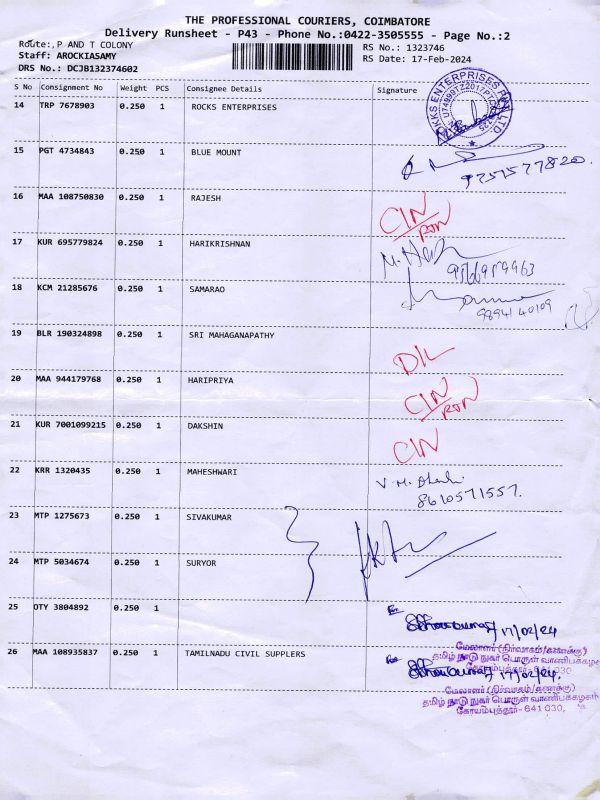 THE PROFESSIONAL COURIERS, COIMBATORE
Delivery Runsheet - P43 - Phone No.:0422-3505555 - Page No.:2
Route:,P AND T COLONY
RS No.: 1323746
Staff: AROCKIASAMY
RS Date: 17-Feb-2024
DRS No.: DCJB132374602
S No Consignment No Weight PCS Consignee Details Signature
14 TRP 7678903 0.250 1 ROCKS ENTERPRISES
15 PGT 4734843 0.250 1 BLUE MOUNT
9751577820.
16 MAA 108750830 0.250 1 RAJESH CIN
RON
17 KUR 695779824 0.250 1 HARIKRISHNAN
18 KCM 21285676 0.250 1 SAMARAO
9894140109
19 BLR 190324898 0.250 1 SRI MAHAGANAPATHY D/L
20 MAA 944179768 0.250 1 HARIPRIYA CIN
RON
21 KUR 7001099215 0.250 1 DAKSHIN CIN
22 KRR 1320435 0.250 1 MAHESHWARI
8610571557.
23 MTP 1275673 0.250 1 SIVAKUMAR
24 MTP 5034674 0.250 1 SURYOR
25 OTY 3804892 0.250 1
17/02/24
மேலாளர் (நிர்வாகம்/கணக்கு)
தமிழ் நாடு நுகர் பொருள் வாணிபக்கழகம்
26 MAA 108935837 0.250 1 TAMILNADU CIVIL SUPPLERS
17/02/24.
மேலாளர் (நிர்வாகம்/கணக்கு)
தமிழ் நாடு நுகர் பொருள் வாணிபக்கழகம்
கோயம்புத்தூர்-641 030.